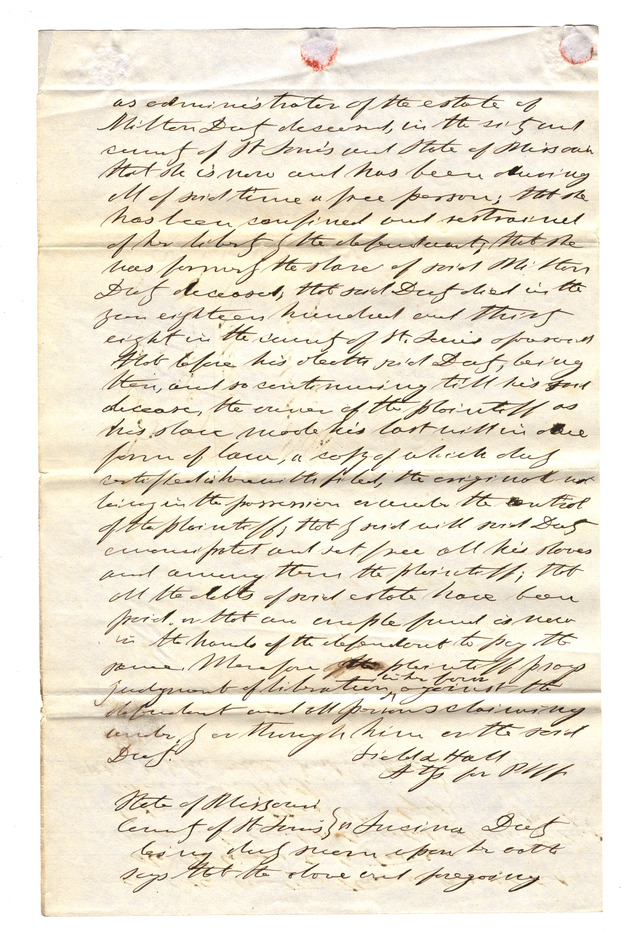 as administrator of the estate of
Milton Duty deceased, in the city and
county of St Louis and State of Missouri
that she is now and has been during
all of said time a free person; that she
has been confined and restrained
of her liberty by the defendant; that she
was formerly the slave of said Milton
Duty deceased; that said Duty died in the
year eighteen hundred and thirty
eight in the county of St. Louis aforesaid
that before his death said Duty, being
then, and so continuing till his said
decease, the owner of the plaintiff as
his slave made his last will in due
form of law, a copy of which duly
certified is herewith filed, the original not
being in the possession or under the control
of the plaintiff; that by said will said Duty
emancipated and set free all his slaves
and among them the plaintiff; that
all the debts of said estate have been
paid, or that an ample fund is now
in the hands of the defendant to pay the
same. Wherefore the plaintiff prays
in her favor
judgment of liberation, against the
defendant and all persons claiming
under, by or through him or the said
Duty.
Field & Hall
Attys for Plff
State of Missouri
County of St Louis } ss Lucina Duty
being duly sworn upon her oath
says that the above and foregoing